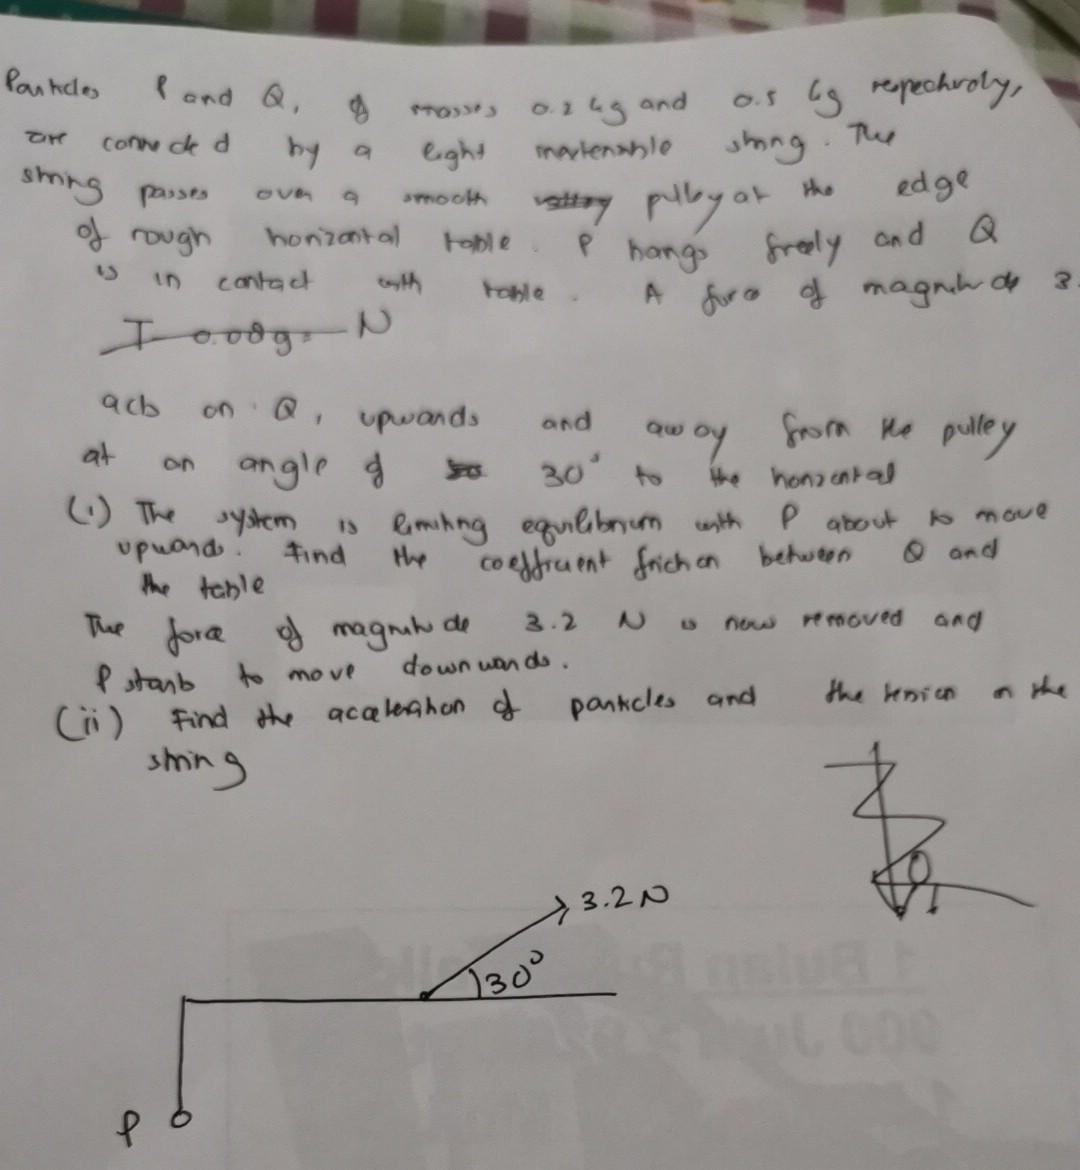 Particles P and Q, of masses 0.2 kg and 0.5 kg respectively,
are connected by a light inextensible string. The
string passes over a smooth pulley at the edge
of rough horizontal table. P hangs freely and Q
is in contact with table. A force of magnitude 3.
T 0.08g = N
acts on Q, upwards and away from the pulley
at an angle of 30° to the horizontal
(i) The system is limiting equilibrium with P about to move
upwards. Find the coefficient friction between Q and
the table
The force of magnitude 3.2 N is now removed and
P starts to move downwards.
(ii) Find the acceleration of particles and the tension in the
string
3.2 N
30°
P